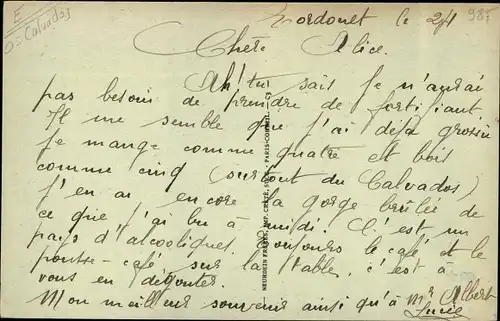 E
O = Calvados
987
Lordonet le 2/1
Chère Alice.
Ah! tu sais je n'aurai
pas besoin de prendre de fortifiant
Il me semble que j'ai déjà grossi
Je mange comme quatre et bois
comme cinq (surtout du Calvados)
J'en ai encore la gorge brûlée de
ce que j'ai bu à midi. C'est un
pays d'alcooliques. Toujours le café et le
pousse-café sur la table, c'est à
vous en dégouter.
Mon meilleur souvenir ainsi qu'à Mr Albert
Lucie
NEURDEIN FRÈRES, IMP. CRÉTÉ, SUCC. PARIS-CORBEIL